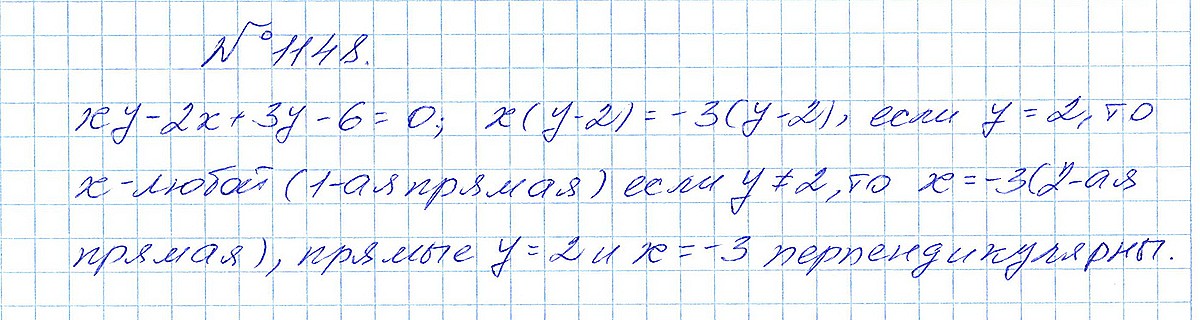 № 1148.
xy-2x+3y-6=0; x(y-2)=-3(y-2), если y=2, то
x-любой (1-ая прямая) если y≠2, то x=-3(2-ая
прямая), прямые y=2 и x=-3 перпендикулярны.